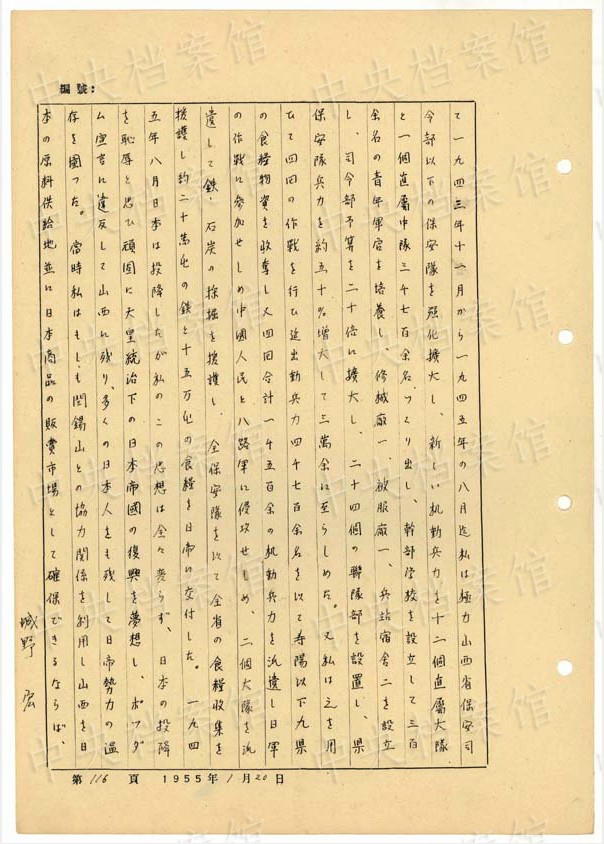 編號:
て一九四三年十一月から一九四五年の八月迄私は極力山西省保安司
令部以下の保安隊を强化擴大し、新しい机動兵力を十二個直屬大隊
と一個直屬中隊三千七百余名、つくり出し、幹部学校を設立して三百
余名の青年軍官を培養し、修械廠一、被服廠一、兵站宿舍二を設立
し、司令部予算を二十倍に擴大し、二十四個の聯隊部を設置し、県
保安隊兵力を約五十%増大して三萬余に至らしめた。又私は之を用
ひて四回の作戰を行ひ延出動兵力四千七百余名を以て寿陽以下九県
の食糧物資を收奪し又四回合計一千五百余の机動兵力を派遣し日軍
の作戰に参加せしめ中國人民と八路軍に侵攻せしめ、二個大隊を派
遣して鉄、石炭の採掘を援護し、全保安隊を以て全省の食糧收集を
援護し約二十萬屯の鉄と十五万屯の食糧を日帝に交付した。一九四
五年八月日本は投降したが私のこの思想は全々変らず、日本の投降
を恥辱と思ひ頑固に天皇統治下の日本帝國の復興を夢想し、ポツダ
ム宣言に違反して山西に残り、多くの日本人をも残して日帝勢力の温
存を圖つた。當時私はもしも閻錫山との協力関係を利用し山西を日
本の原料供給地並に日本商品の販賣市場として確保できるならば、
城野 宏
第 116 頁 1955年 1月 20日
中央档案馆